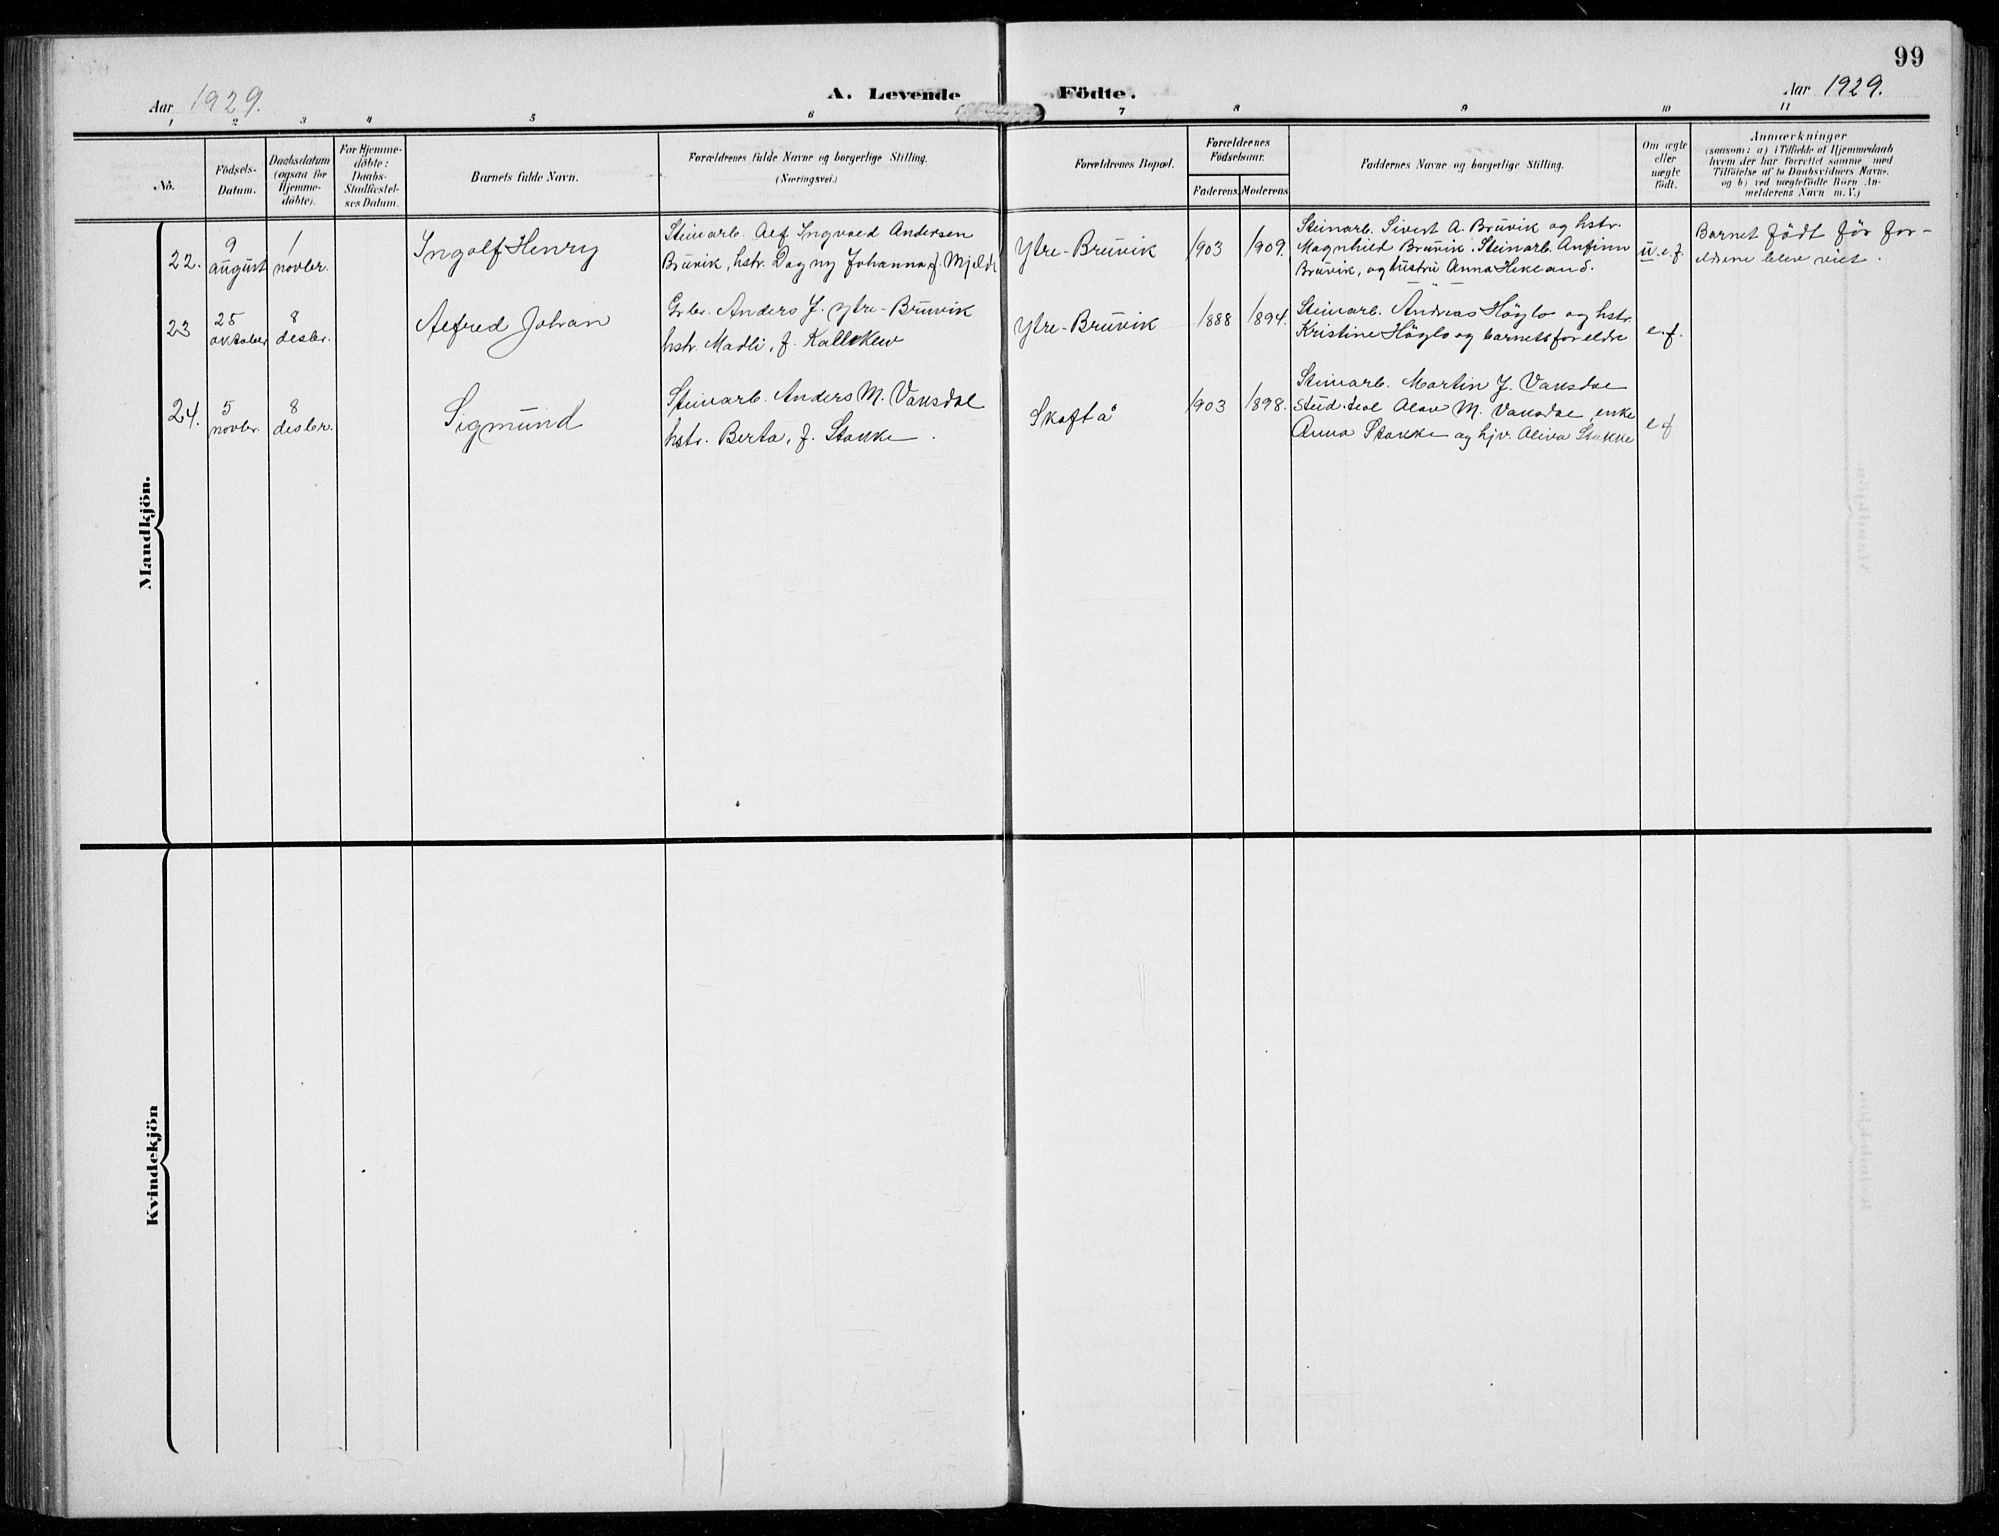 99
Aar 1929.
A. Levende Födte.
Aar 1929.
1 2 3 4 5 6 7 8 9 10 11
No.
Födsels-
Datum.
Daabsdatum
(ogsaa for
Hjemme-
döbte).
For Hjemme-
döbte:
Daabs-
Stadfæstel-
ses Datum.
Barnets fulde Navn.
Forældrenes fulde Navne og borgerlige Stilling.
(Næringsvei.)
Forældrenes Bopæl.
Forældrenes
Födselsaar.
Faderens. Moderens.
Faddernes Navne og borgerlige Stilling.
Om ægte
eller
uægte
födt.
Anmærkninger
(saasom: a) i Tilfælde af Hjemmedaab
hvem der har forrettet samme, med
Tilföielse af to Daabsvidners Navne.
og b) ved uægtefödte Börn An-
melderens Navn m. V.)
Mandkjön.
22.
9
august
1
novbr.
Ingolf Henry
Steinarb. Alf Ingvald Andersen
Bruvik, hstr. Dagny Johanna, f. Mjelde
Ytre-Bruvik
1903
1909.
Steinarb. Sivert A. Bruvik og hstr.
Magnhild Bruvik. Steinarb. Anfinn
Bruvik, og hustru Anna Hekland.
u.e.f.
Barnet födt för for-
eldrene blev viet.
23
25
oktober
8
desbr.
Alfred Johan
Grbr. Anders J. ytre-Bruvik
hstr. Madli, f. Kalleklev
Ytre-Bruvik
1888
1894.
Steinarb. Andreas Höglo og hstr.
Kristine Höglo og barnets foreldre
e.f.
24.
5
novbr.
8
desbr.
Sigmund
Steinarb. Anders M. Vaksdal
hstr. Berta, f. Stokke.
Skaftå
1903
1898.
Steinarb. Martin J. Vaksdal
stud. teol Olav M. Vaksdal, enke
Anna Stokke og hjv. Oliva Stokke
e.f
Kvindekjön